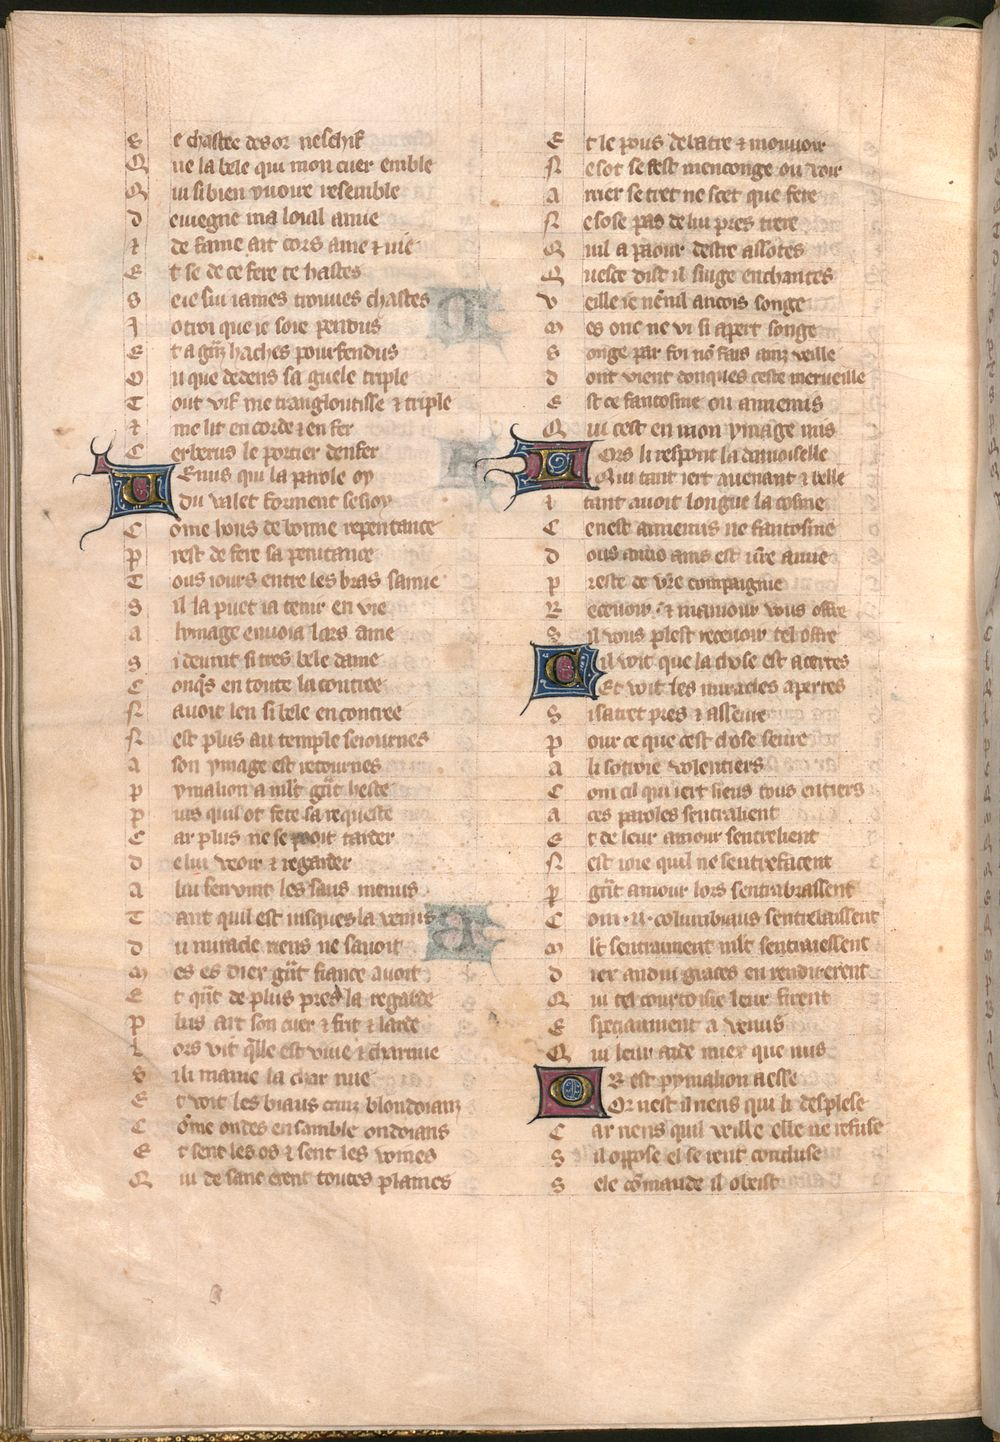 S e chastee desor neschif
Q ue la bele qui mon cuer emble
Q ui si bien yuoire resemble
D euiegne ma loial amie
⁊ de fame ait cors ame ⁊ uie
E t se de ce fere te hastes
S e ie sui iames trouues chastes
J otroi que ie soie pendus
E t a gr̃z haches pourfendus
O u que dedens sa guele triple
T out vif me transgloutisse ⁊ triple
⁊ me lit en corde ⁊ en fer
C erberus le portier denfer
Uenus qui la parole oy
du valet forment sesioy
C õme lions de bonne repentance
P rest de fere sa penitance
T ous iours entre les bras samie
S il la puet ia tenir en vie
A lymage enuoia lors ame
S i deuint si tres bele dame
C onq̃s en toute la contree
N auoit len si bele encontree
N est plus au temple seiournes
A son ymage est retournes
P ymalion a mlt̃ gr̃t heste
P uis quil ot fete sa requeste
C ar plus ne se pooit tarder
D e lui veoir ⁊ regarder
A lui sen vint les saus menus
T ant quil est iusques la venus
D u miracle riens ne sauoit
M es es diex gr̃t fiance auoit
E t qñt de plus pres la regarde
P lus art son cuer ⁊ frit ⁊ larde
L ors vit q̃lle est viue ⁊ charnue
S i li manie la char nue
E t voit les biaus crins blondoianz
C õme ondes ensamble ondoians
E t sent les os ⁊ sent les voines
Q ui de sanc erent toutes plaines
E t le pous debatre ⁊ mouuoir
N e sot se fest menconge ou voir
A rrier se tret ne scet que fere
N e sose pas de lui pres trere
Q uil a paour destre assotes
Q uesce dist il suige enchantes
V eille ie nẽnil ancois songe
M es onc ne vi si apert songe
S onge par foi nõ fais ainz veille
D ont vient donques ceste merueille
E st ce fantosme ou annemis
Q ui cest en mon ymage mis
Lors li respont la damoiselle
Qui tant iert auenant ⁊ belle
⁊ tant auoit longue la cosme
C e nest annemis ne fantosme
D ous amis ains est vr̃e amie
P reste de vr̃e compaignie
R eceuoir ⁊ mamour vous offre
S il vous plest receuoir tel offre
Cil voit que la chose est acertes
Et voit les miracles apertes
S i satret pres ⁊ asseure
P our ce que cest chose seure
A li sotroie volentiers
C om cil qui iert siens tous entiers
A ces paroles sentralient
E t de leur amour sentrelient
N est ioie quil ne sentrefacent
P gr̃t amour lors sentrabrassent
C om .ii. columbiaus sentrebaissent
M lt̃ sentraiment mlt̃ sentraiessent
D iex andui graces en rendirerent
Q ui tel courtoisie leur firent
E speciaument a venus
Q ui leur aide miex que nus
Or est pymalion aesse
Or nest il riens qui li desplese
C ar riens quil veille elle ne refuse
S il oppose el se rent concluse
S ele cõmande il obeist